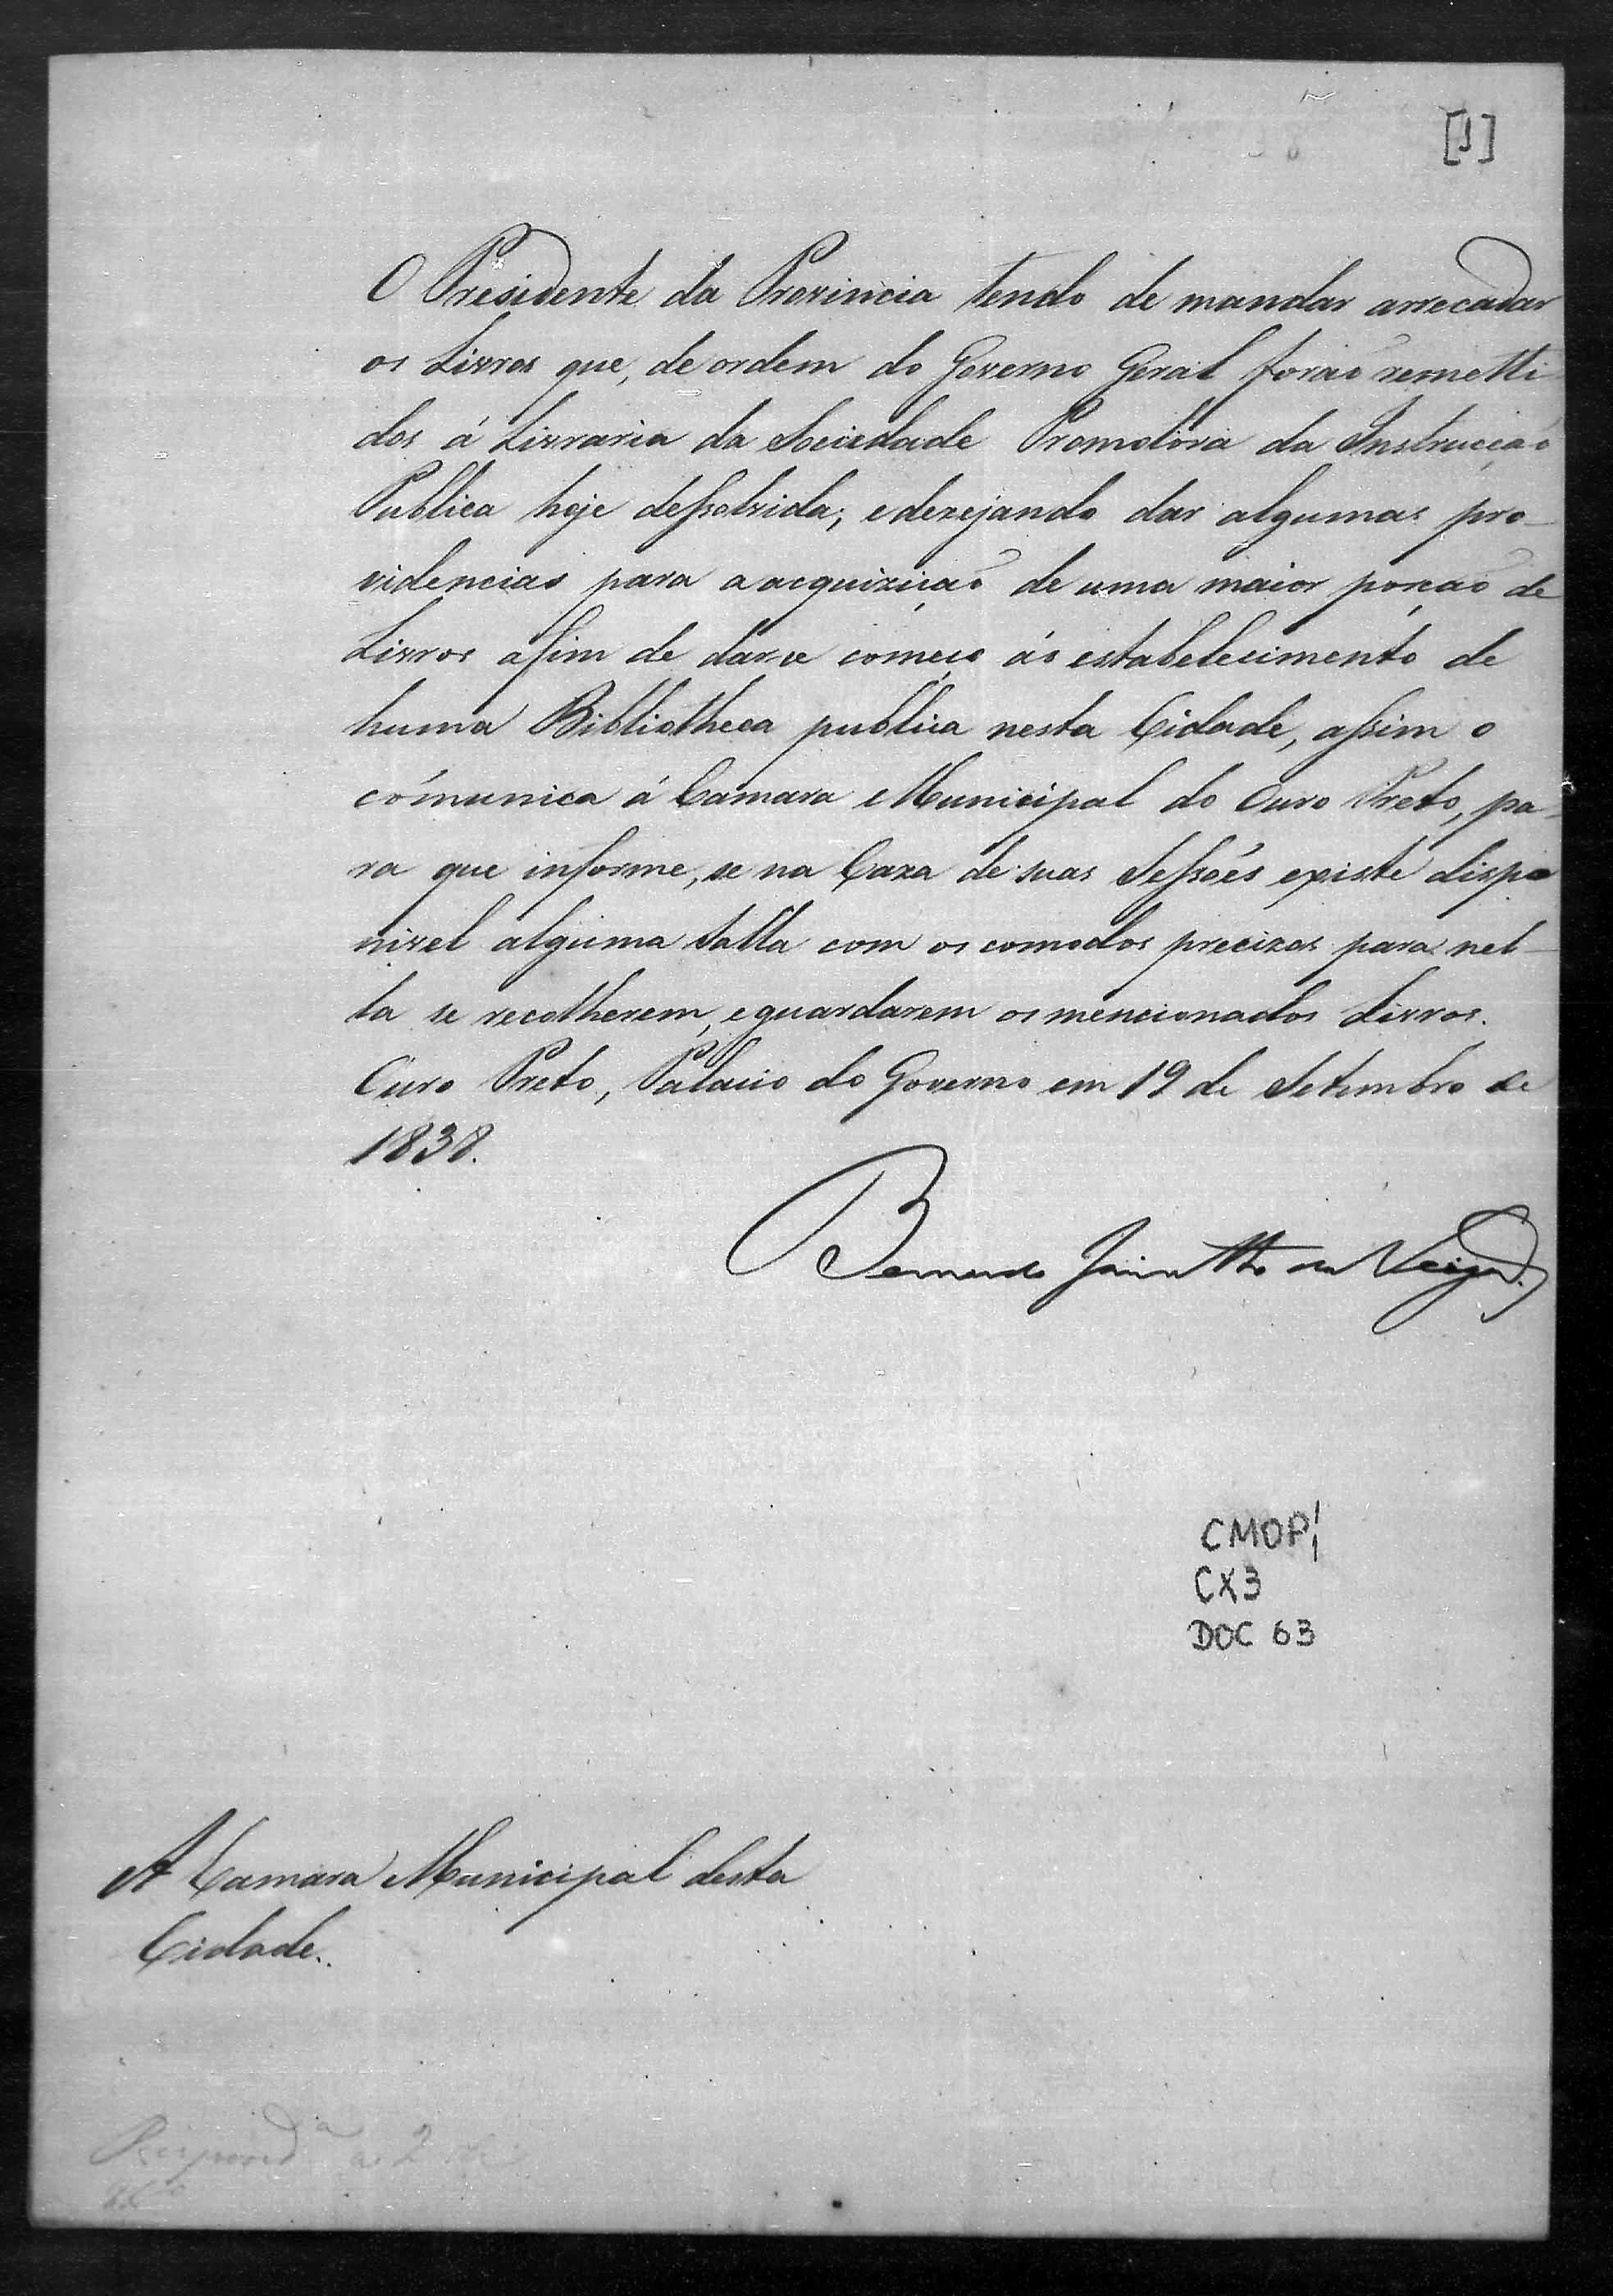 [1]
O Presidente da Provincia tendo de mandar arrecadar
os Livros que, de ordem do Governo Geral forão remetti
dos á Livraria da Sociedade Promotora da Instrucção
Publica hoje dessolvida; e dezejando dar algumas pro-
videncias para a acquizição de uma maior porção de
Livros afim de dar-se começo ao estabelecimento de
huma Bibliotheca publica nesta Cidade, assim o
communica á Camara Municipal do Ouro Preto, pa-
ra que informe, se na Caza de suas Sessões existe dispo
nivel alguma Salla com os comodos precizos para nel-
la se recolherem, e guardarem os mencionados Livros.
Ouro Preto, Palacio do Governo em 19 de Setembro de
1838.
Bernardo Jacintho da Veiga.
CMOP
CX3
DOC 63
A Camara Municipal desta
Cidade.